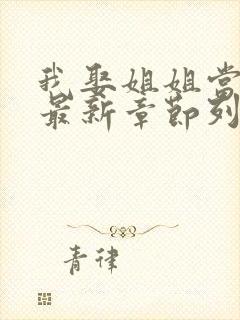 我娶姐姐当
最新章节列
青律